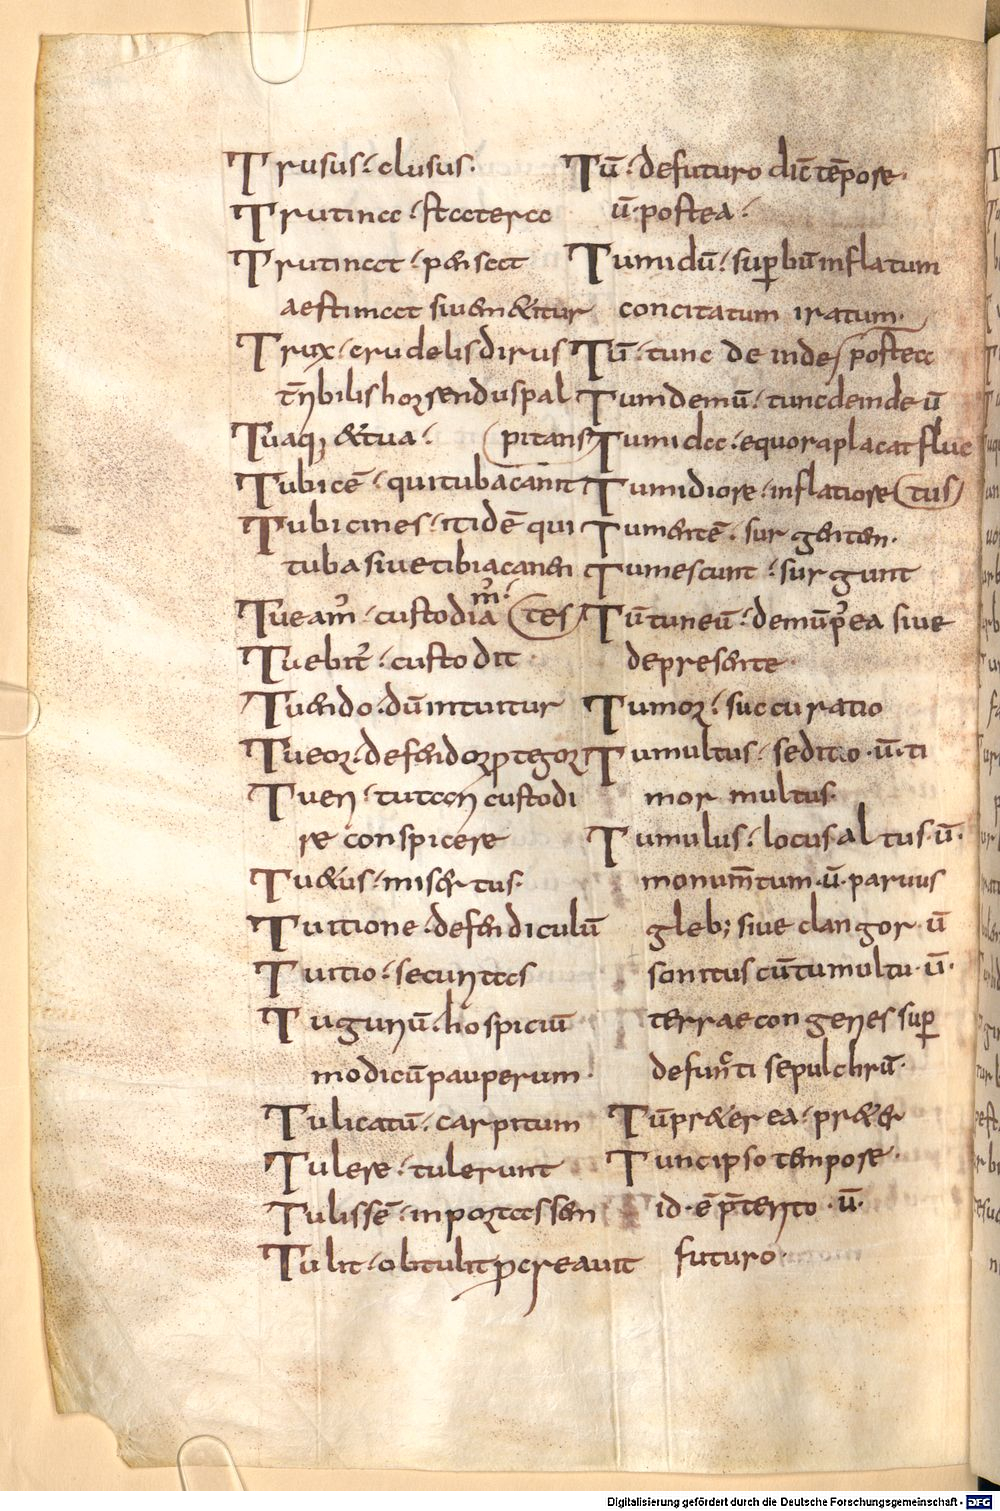 Trusus · clusus ·
Trutinec · stateree
Trutinat · pensat
aestimat siue metitur
Trux · crudelis dirus
terribilis horrendus pal
Tuaq; & tua · (pitans
Tubicē · qui tuba canit
Tubicines · itidē qui
tuba siue tibia canen
Tueam̄ · custodiam̄ · (tes
Tuebit̄ · custodit ·
Tuendo · dū intuitur
Tueor · defendor ꝓtegor
Tueri · tutari custodi
re conspicere
Tu&us · mis&us ·
Tuitione · defendiculū
Tuitio · securitas
Tuguriū · hospiciū
modicū pauperum ·
Tulicatū · carpitum
Tulere · tulerunt
Tulissē · inportassen
Tulit · obtulit ꝓcreauit
Tū · defuturo dic̄ tēpore ·
ū · postea ·
Tumidū · suꝑbū inflatum
concitatum iratum ·
Tū · tunc deinde postea
Tumdemū · tuncdeinde ū
Tumida · equora placat fluc
Tumidiore · inflatiore (tus)
Tumentē · surgenten ·
Tumescunt · surgunt
Tū tuneū · demū p̄ea siue
depresente ·
Tumor · succuratio
Tumultus · seditio · ū · ti
mor multus ·
Tumulus · locus altus · ū ·
monum̄tum · ū · paruus
gleb; siue clangor · ū
sonitus cū tumultu · ū ·
terrae congeries suꝑ
defuncti sepulchrū ·
Tū pr&erea · pr&er
Tunc ipso tempore ·
id · ē p̄terito · ū ·
futuro ·
Digitalisierung gefördert durch die Deutsche Forschungsgemeinschaft - DFG